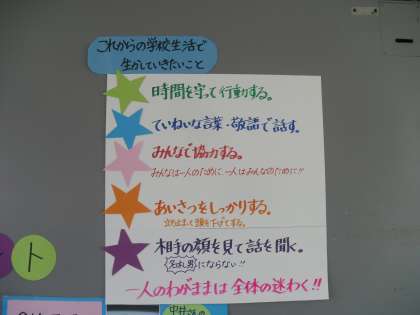 これからの学校生活で
生かしていきたいこと
時間を守って行動する。
ていねいな言葉・敬語で話す。
みんなで協力する。
みんなは一人のために 一人はみんなのために!!
あいさつをしっかりする。
立ち止まって頭を下げてする。
相手の顔を見て話を聞く。
にならない!!
一人のわがままは全体の迷わく!!
ト